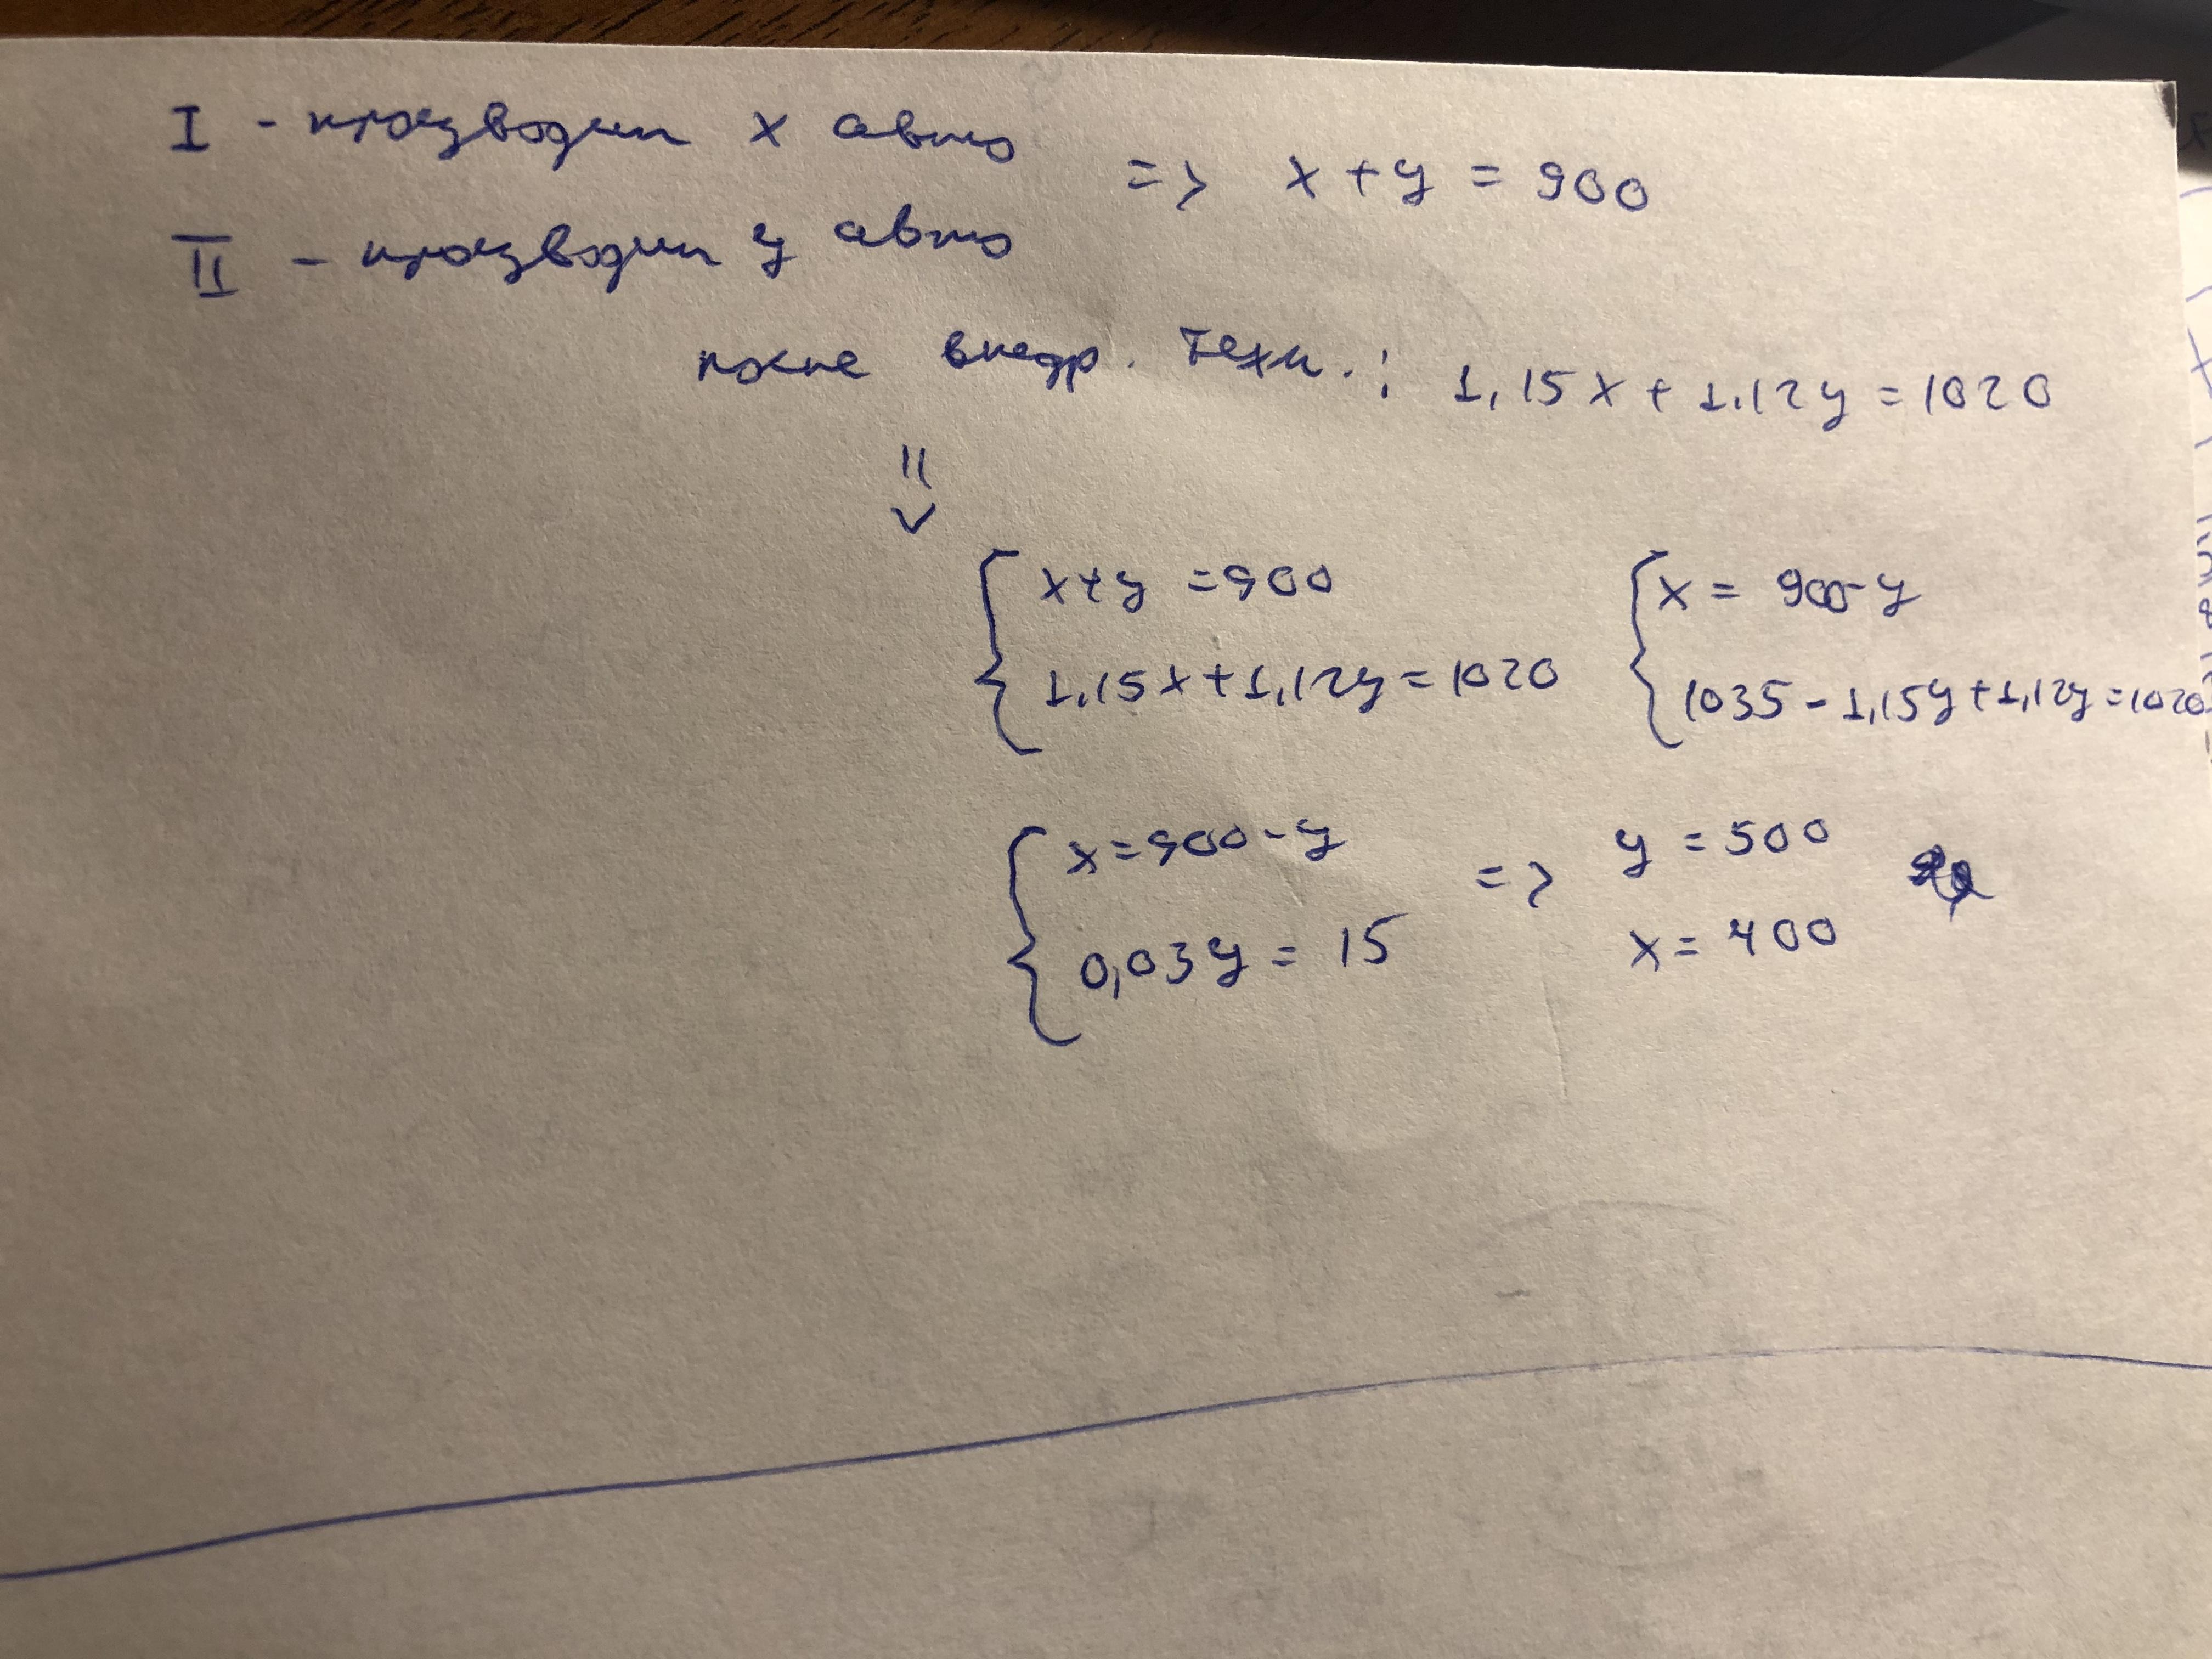 I - производит x авто
=> x + y = 900
II - производит y авто
после внедр. техн.: 1,15x + 1,12y = 1020
x+y = 900
1,15x + 1,12y = 1020
x = 900-y
1035 - 1,15y + 1,12y = 1020
x = 900 - y
0,03y = 15
=> y = 500
x = 400